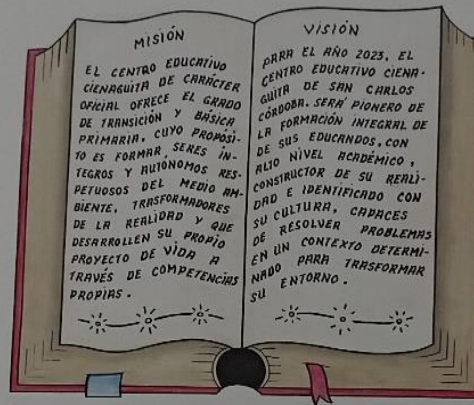 MISIÓN
EL CENTRO EDUCATIVO
CIENAGUITA DE CARÁCTER
OFICIAL OFRECE EL GRADO
DE TRANSICIÓN Y BÁSICA
PRIMARIA, CUYO PROPÓSI-
TO ES FORMAR SERES IN-
TEGROS Y AUTÓNOMOS RES-
PETUOSOS DEL MEDIO AM-
BIENTE, TRASFORMADORES
DE LA REALIDAD Y QUE
DESARROLLEN SU PROPIO
PROYECTO DE VIDA A
TRAVÉS DE COMPETENCIAS
PROPIAS.
VISIÓN
PARA EL AÑO 2023, EL
CENTRO EDUCATIVO CIENA-
GUITA DE SAN CARLOS
CÓRDOBA, SERÁ PIONERO DE
LA FORMACIÓN INTEGRAL DE
DE SUS EDUCANDOS, CON
ALTO NIVEL ACADÉMICO,
CONSTRUCTOR DE SU REALI-
DAD E IDENTIFICADO CON
SU CULTURA, CAPACES
DE RESOLVER PROBLEMAS
EN UN CONTEXTO DETERMI-
NADO PARA TRASFORMAR
SU ENTORNO.